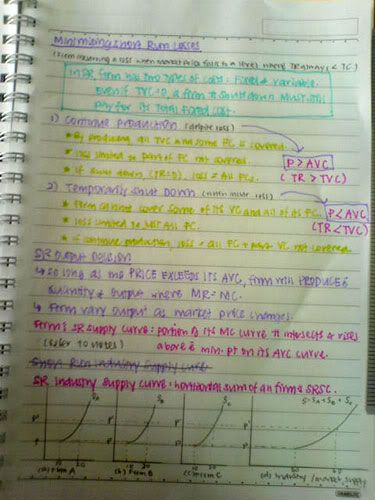 Minimising Short Run Losses
(Firm incurring a loss when market price falls to a level where TR (< TC)
In SR firm has two types of costs: Fixed & variable.
Even if TVC=0, a firm tt shutdown must still
pay for its total fixed cost.
1) Continue Production (despite loss)
* By producing, all TVC and some FC is covered.
* loss limited to part of FC not covered.
* if shut down, (TR=0), loss = all FCs.
P > AVC
(TR > TVC)
2) Temporarily Shut Down (when incur loss)
* Firm cannot cover some of its VC and all of its FC.
* loss limited to just all FC.
* if continue production, loss = all FC + part VC not covered.
P < AVC
(TR < TVC)
SR Output Decision
↳ so long as the PRICE EXCEEDS ITS AVC, firm will PRODUCE &
quantity & output where MR = MC.
↳ Firm vary output as market price changes.
Firm's SR supply curve: portion of its MC curve tt intersects & rises
(Refer to notes) above & min. pt on its AVC curve.
Short Run Industry Supply Curve
SR Industry Supply curve: horizontal sum of all firms SRSC.
SA SB SC S = SA + SB + SC
(a) Firm A (b) Firm B (c) Firm C (d) Industry / market supply